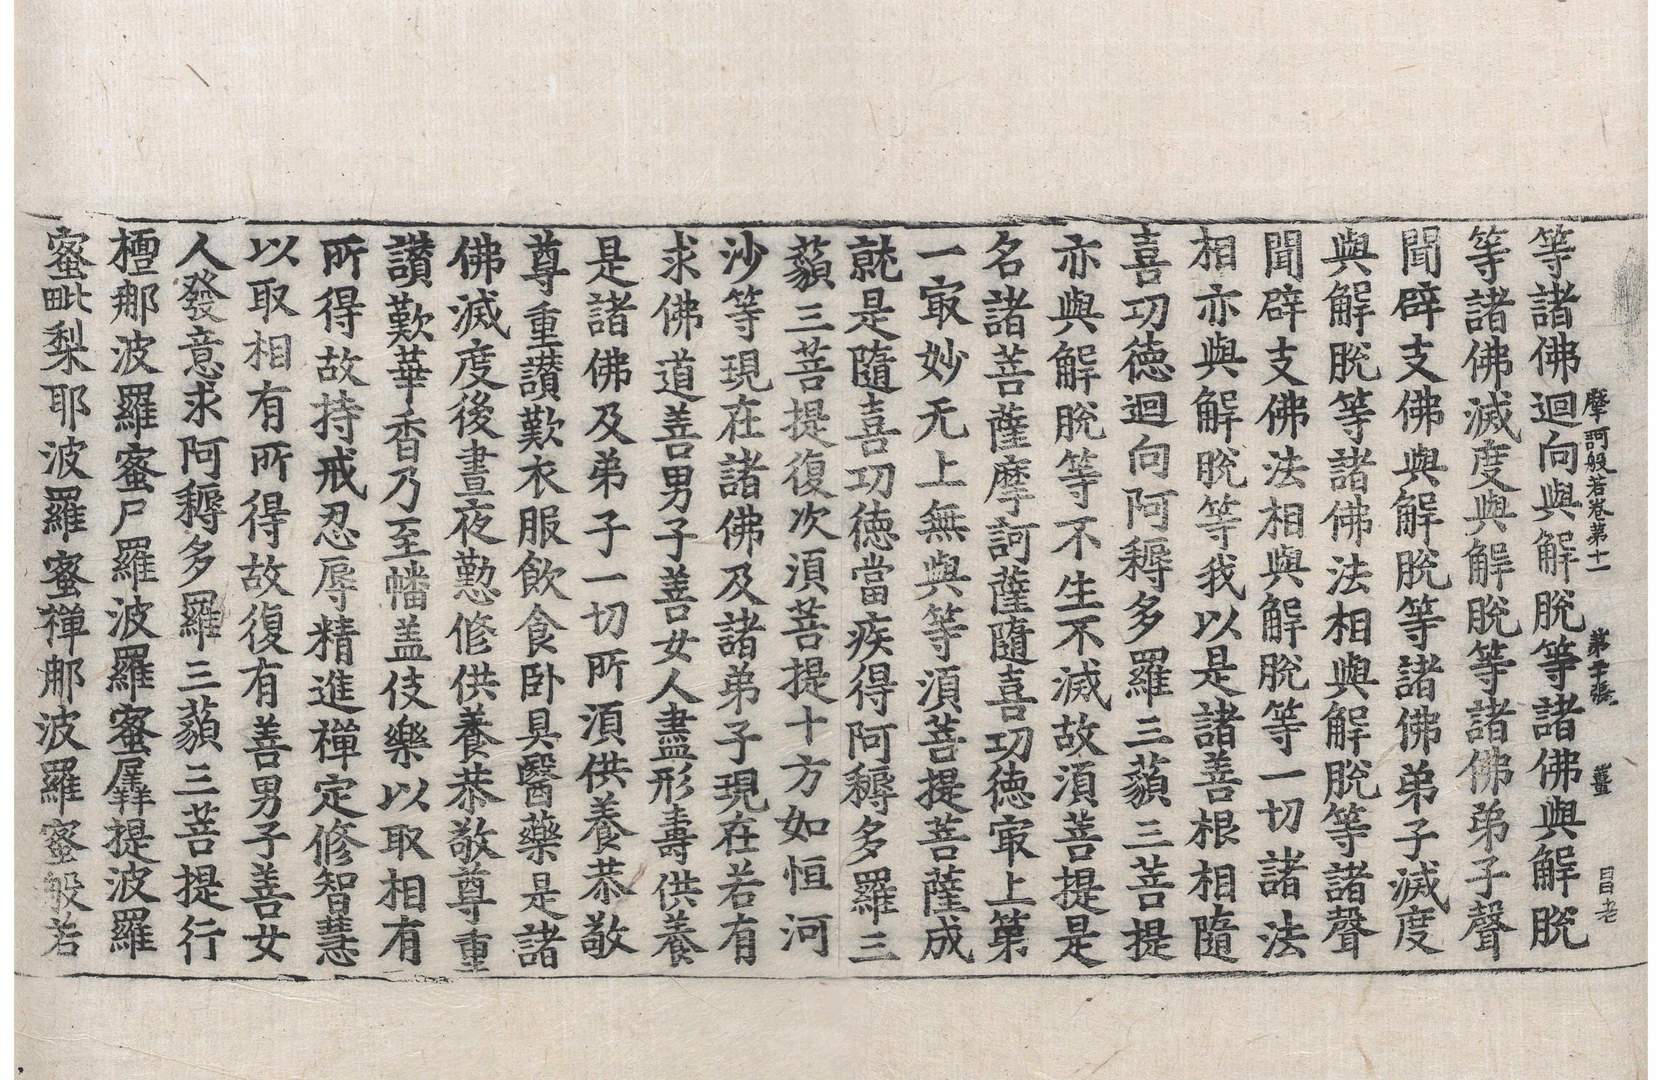 摩訶般若卷第十一 第二十張 薑 目老
等諸佛迴向與解脫等諸佛與解脫
等諸佛滅度與解脫等諸佛弟子聲
聞辟支佛與解脫等諸佛弟子滅度
與解脫等諸佛法相與解脫等諸聲
聞辟支佛法相與解脫等一切諸法
相亦與解脫等我以是諸善根相隨
喜功德迴向阿耨多羅三藐三菩提
亦與解脫等不生不滅故須菩提是
名諸菩薩摩訶薩隨喜功德㝡上第
一㝡妙无上無與等須菩提菩薩成
就是隨喜功德當疾得阿耨多羅三
藐三菩提復次須菩提十方如恒河
沙等現在諸佛及諸弟子現在若有
求佛道善男子善女人盡形壽供養
是諸佛及弟子一切所須供養恭敬
尊重讚歎衣服飲食卧具醫藥是諸
佛滅度後晝夜懃修供養恭敬尊重
讚歎華香乃至幡盖伎樂以取相有
所得故持戒忍辱精進禪定修智慧
以取相有所得故復有善男子善女
人發意求阿耨多羅三藐三菩提行
檀那波羅蜜尸羅波羅蜜羼提波羅
蜜毗梨耶波羅蜜禪那波羅蜜般若